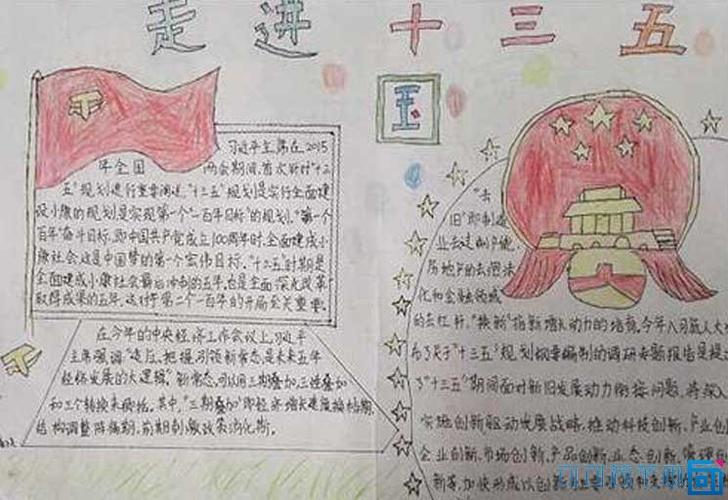 走进十三五
习近平主席在2015
年全国两会期间,首次针对"十三
五"规划进行重要阐述,"十三五"规划是实行全面建
设小康的规划是实现第一个"一百年目标"的规划。"第一个
百年"奋斗目标,即中国共产党成立100周年时,全面建成小
康社会这是中国梦的第一个宏伟目标。"十三五"时期是
全面建成小康社会最后冲刺的五年,也是全面深化改革
取得成果的五年,这对于第二个一百年的开局至关重要。
在今年的中央经济工作会议上,习近平
主席强调
把握引领新常态是未来五年
经济发展的大逻辑"新常态可以用三期叠加
和三个转换来概括。其中,"三期叠加"即经济增长速度换档期,
结构调整阵痛期,前期刺激政策消化期。
"去
旧"即制造
业去过剩产能
房地产的去
化和金融领域
的去杠杆,"换新"指新增长动力的培育。今年八月
"十三五"规划纲要编制的调研专题报告是
了"十三五"期间面对新旧发展动力衔接问题,将深
实施创新驱动发展战略,推动科技创新、产业创
企业创新、市场创新、产品创新、业态创新、管理创
新等,加快形成以创新